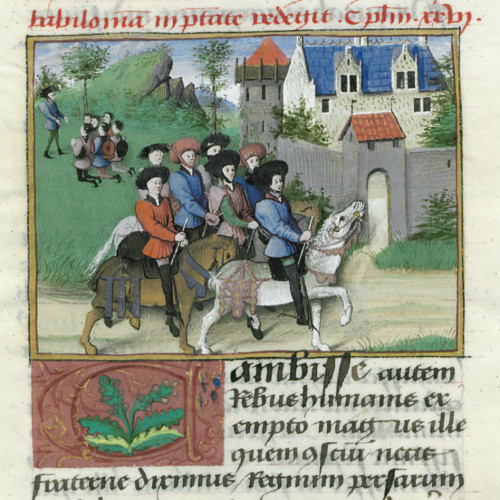 babiloniam in p̄tate redegit . C plm̄ . xxvj .
Cambisse autem
Rebus humanis ex
empto magus ille
quem
fraterne diximus Regnum persarum